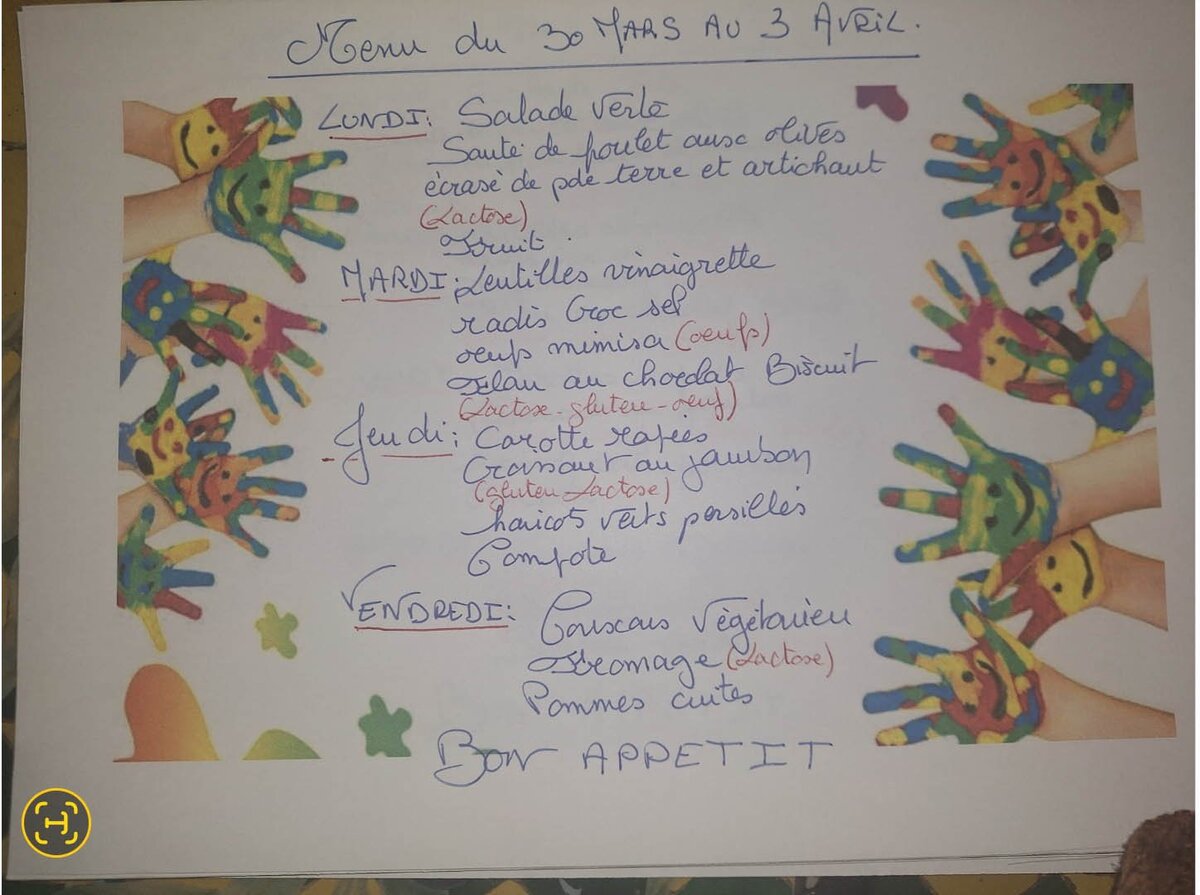 Menu du 30 MARS AU 3 AVRIL.
LUNDI: Salade verte
Sauté de poulet aux olives
écrasé de p de terre et artichaut
(Lactose)
Fruit
MARDI: Lentilles vinaigrette
radis Croc sel
oeufs mimisa (oeufs)
Flan au chocolat Biscuit
(Lactose-gluten-oeuf)
Jeudi: Carotte rapées
Croissant au jambon
(gluten Lactose)
haricots verts persillés
Compote
VENDREDI: Couscous Végétarien
Fromage (Lactose)
Pommes cuites
BON APPETIT